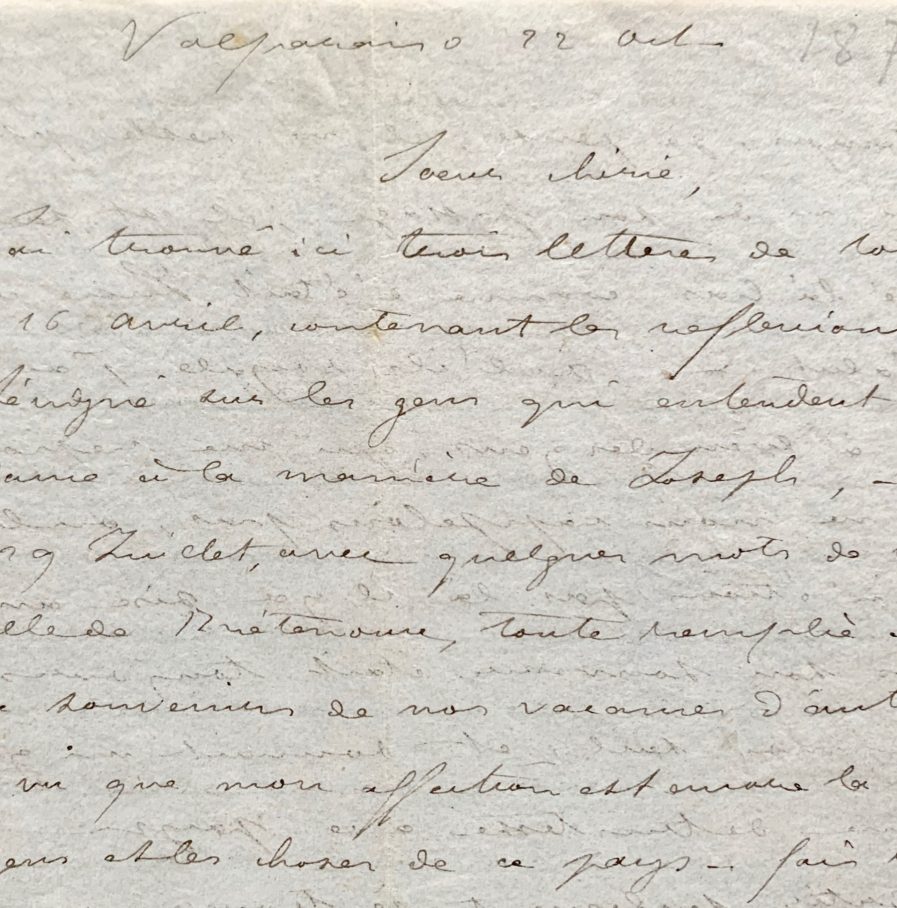 Valparaiso 22 Oct 187
Soeur chérie,
ai trouvé ici trois lettres de to
16 avril, contenant les reflexion
Sévigné sur les gens qui entendent
à la manière de Joseph, -
9 Juillet, avec quelques mots de
elle de toute remplie
souvenirs de nos vacances d'aut
vu que mon affection est encore la
gens et les choses de ce pays - fais